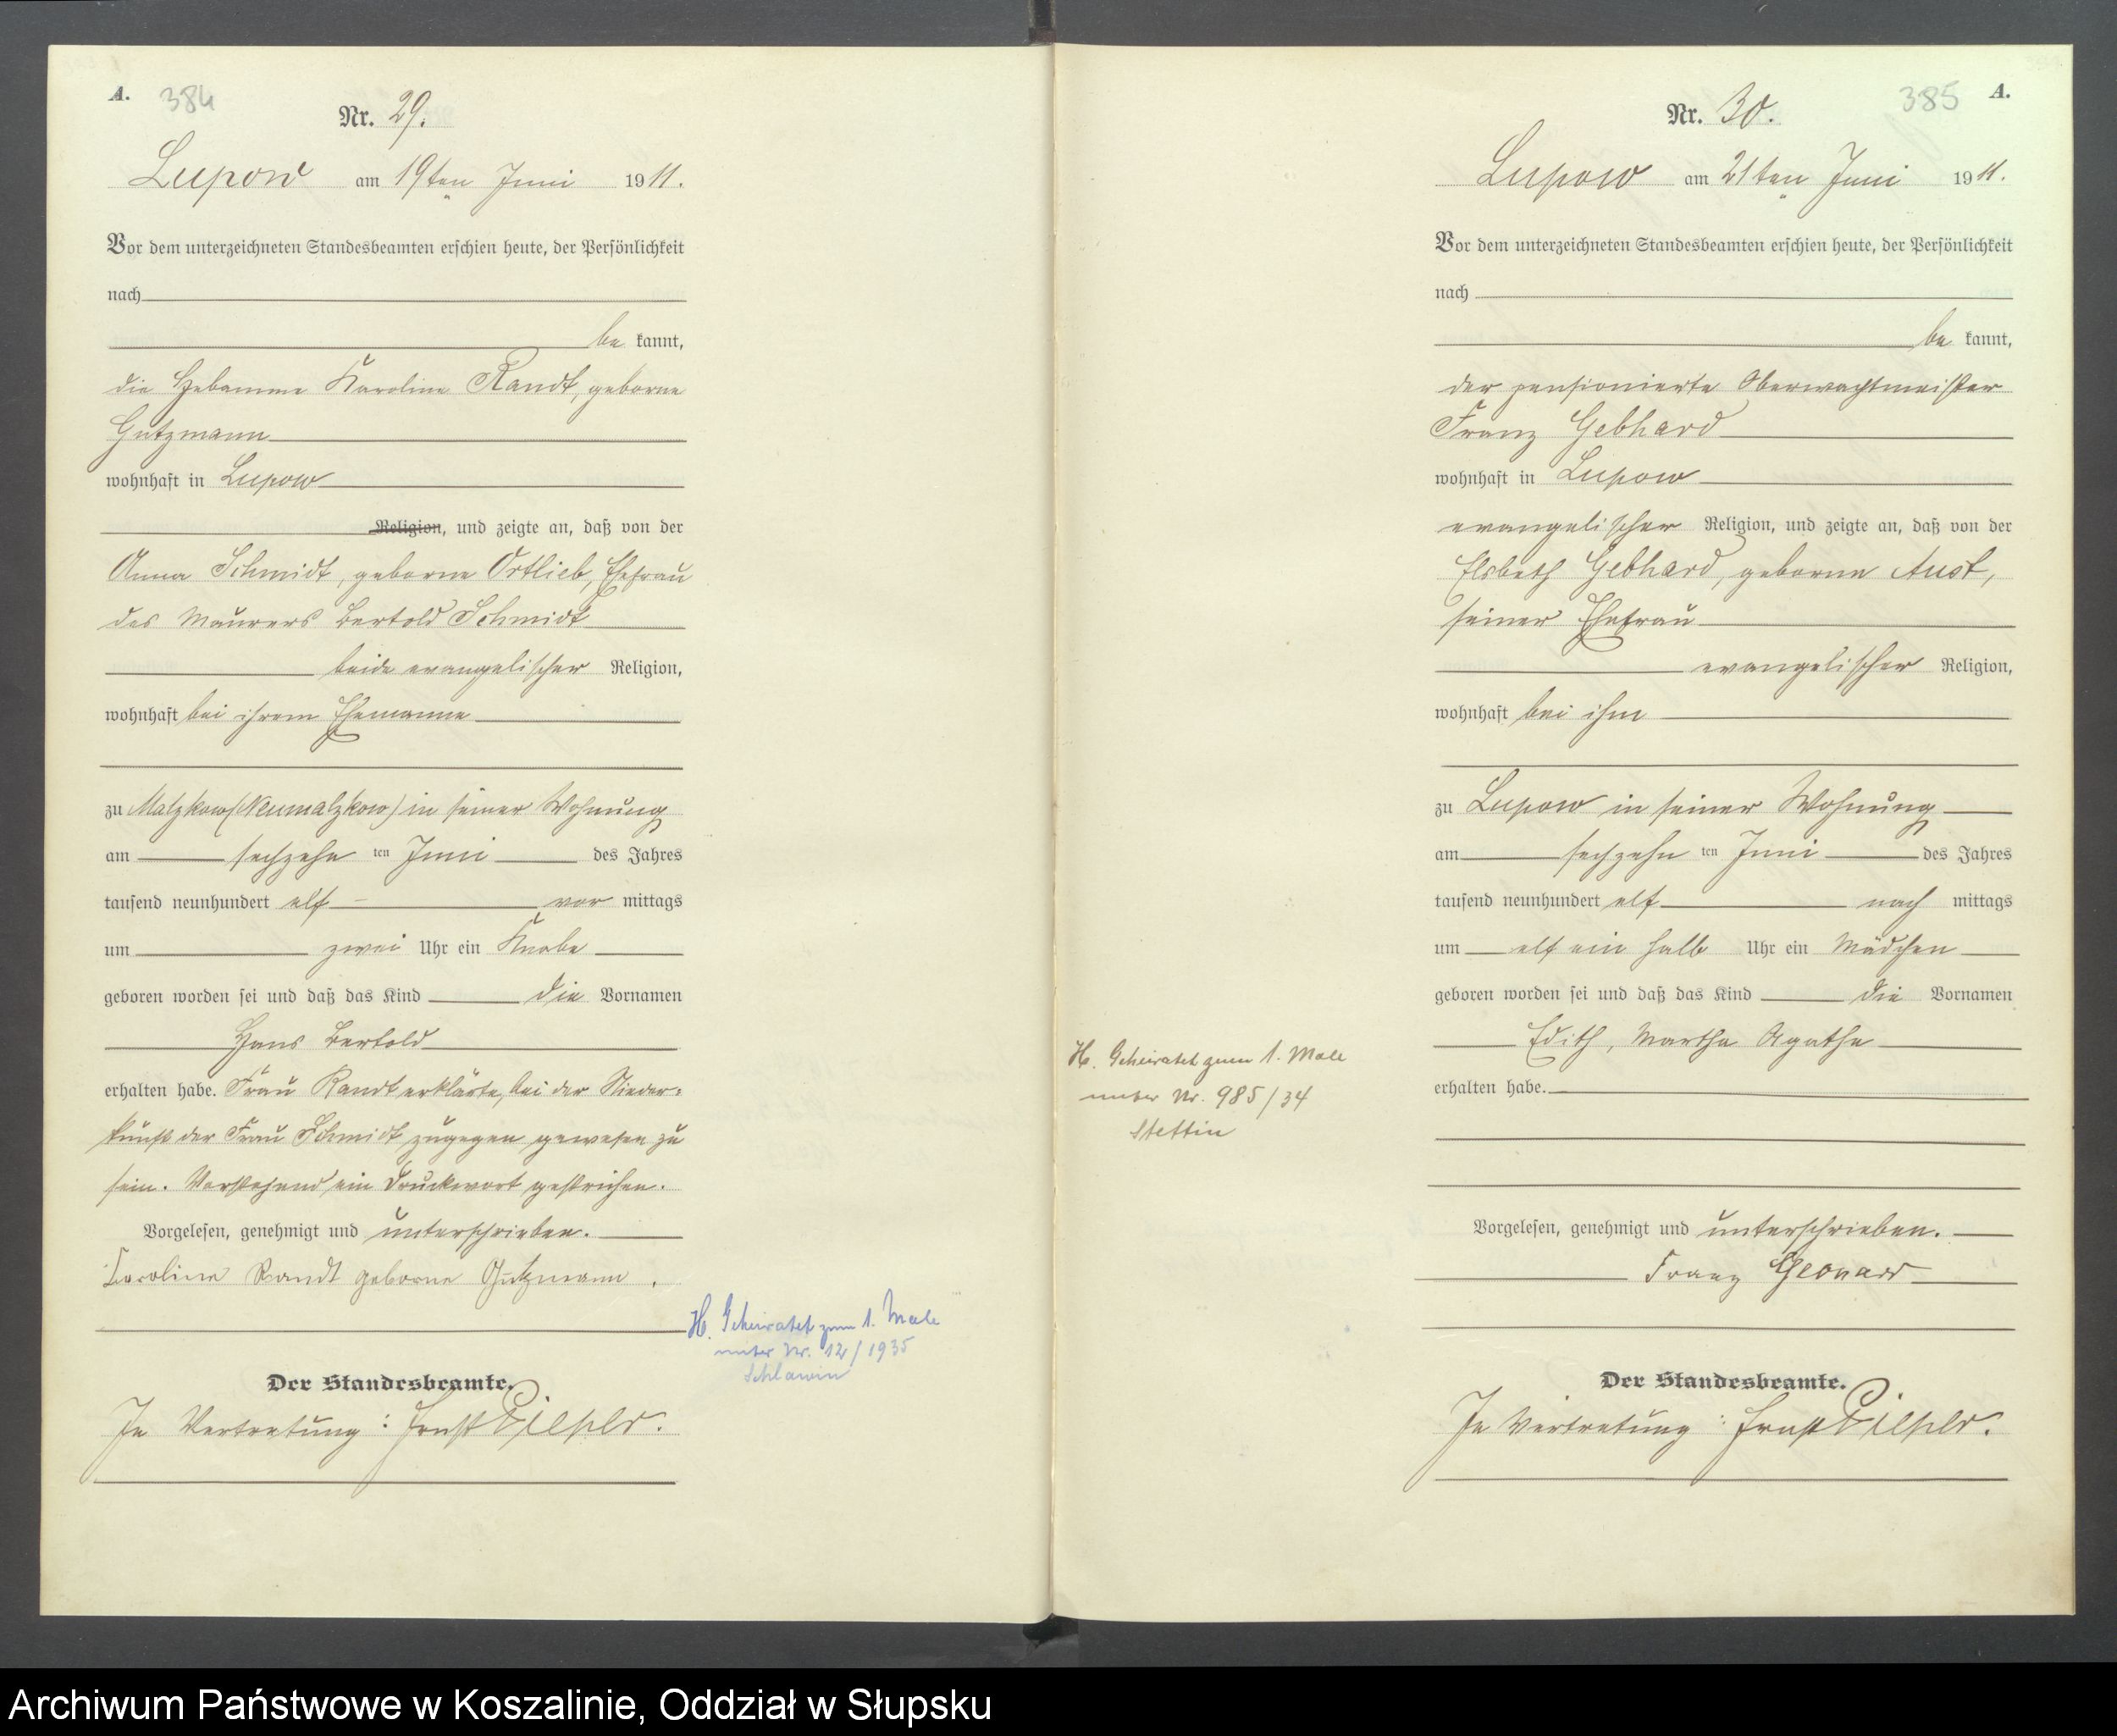 A. 384
Nr. 29.
Lupow am 19ten Juni 1911.
Vor dem unterzeichneten Standesbeamten erschien heute, der Persönlichkeit
nach
be kannt,
die Hebamme Karoline Randt, geborne
Gutzmann
wohnhaft in Lupow
Religion, und zeigte an, daß von der
Anna Schmidt, geborne Ortlieb, Ehefrau
des Maurers Bertold Schmidt
beide evangelischer Religion,
wohnhaft bei ihrem Ehemanne
zu Malzkow (Neumalzkow) in seiner Wohnung
am sechzehn ten Juni des Jahres
tausend neunhundert elf vor mittags
um zwei Uhr ein Knabe
geboren worden sei und daß das Kind die Vornamen
Hans Bertold
erhalten habe. Frau Randt erklärte, bei der Nieder-
kunft der Frau Schmidt zugegen gewesen zu
sein. Vorstehend ein Druckwort gestrichen.
Vorgelesen, genehmigt und unterschrieben.
Karoline Randt geborne Gutzmann.
H. Geheiratet zum 1. Male
unter Nr. 12/1935
Schlawin
Der Standesbeamte.
In Vertretung: Ernst Pieper.
385 A.
Nr. 30.
Lupow am 21ten Juni 1911.
Vor dem unterzeichneten Standesbeamten erschien heute, der Persönlichkeit
nach
be kannt,
der pensionierte Oberwachtmeister
Franz Gebhard
wohnhaft in Lupow
evangelischer Religion, und zeigte an, daß von der
Elsbeth Gebhard, geborne Aust,
seiner Ehefrau
evangelischer Religion,
wohnhaft bei ihm
zu Lupow in seiner Wohnung
am sechzehn ten Juni des Jahres
tausend neunhundert elf nach mittags
um elf ein halb Uhr ein Mädchen
geboren worden sei und daß das Kind die Vornamen
Edith, Martha Agathe
erhalten habe.
H. Geheiratet zum 1. Male
unter Nr. 985/34
Stettin
Vorgelesen, genehmigt und unterschrieben.
Franz Gebhard
Der Standesbeamte.
In Vertretung: Ernst Pieper.
Archiwum Państwowe w Koszalinie, Oddział w Słupsku